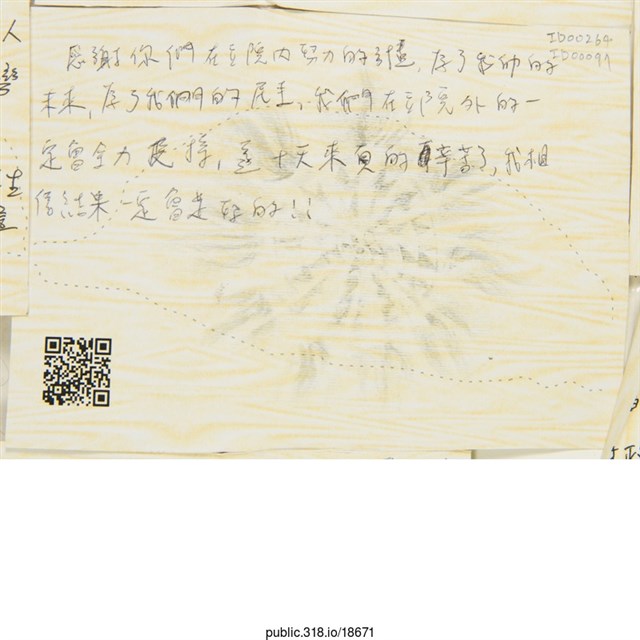 ID00264
ID00099
感謝你們在立院內努力的撐,為了我們的
未來,為了我們的民主,我們在立院外的一
定會全力支撐,這十天來真的辛苦了,我相
信結果一定會是好的!!
人
生
public.318.io/18671